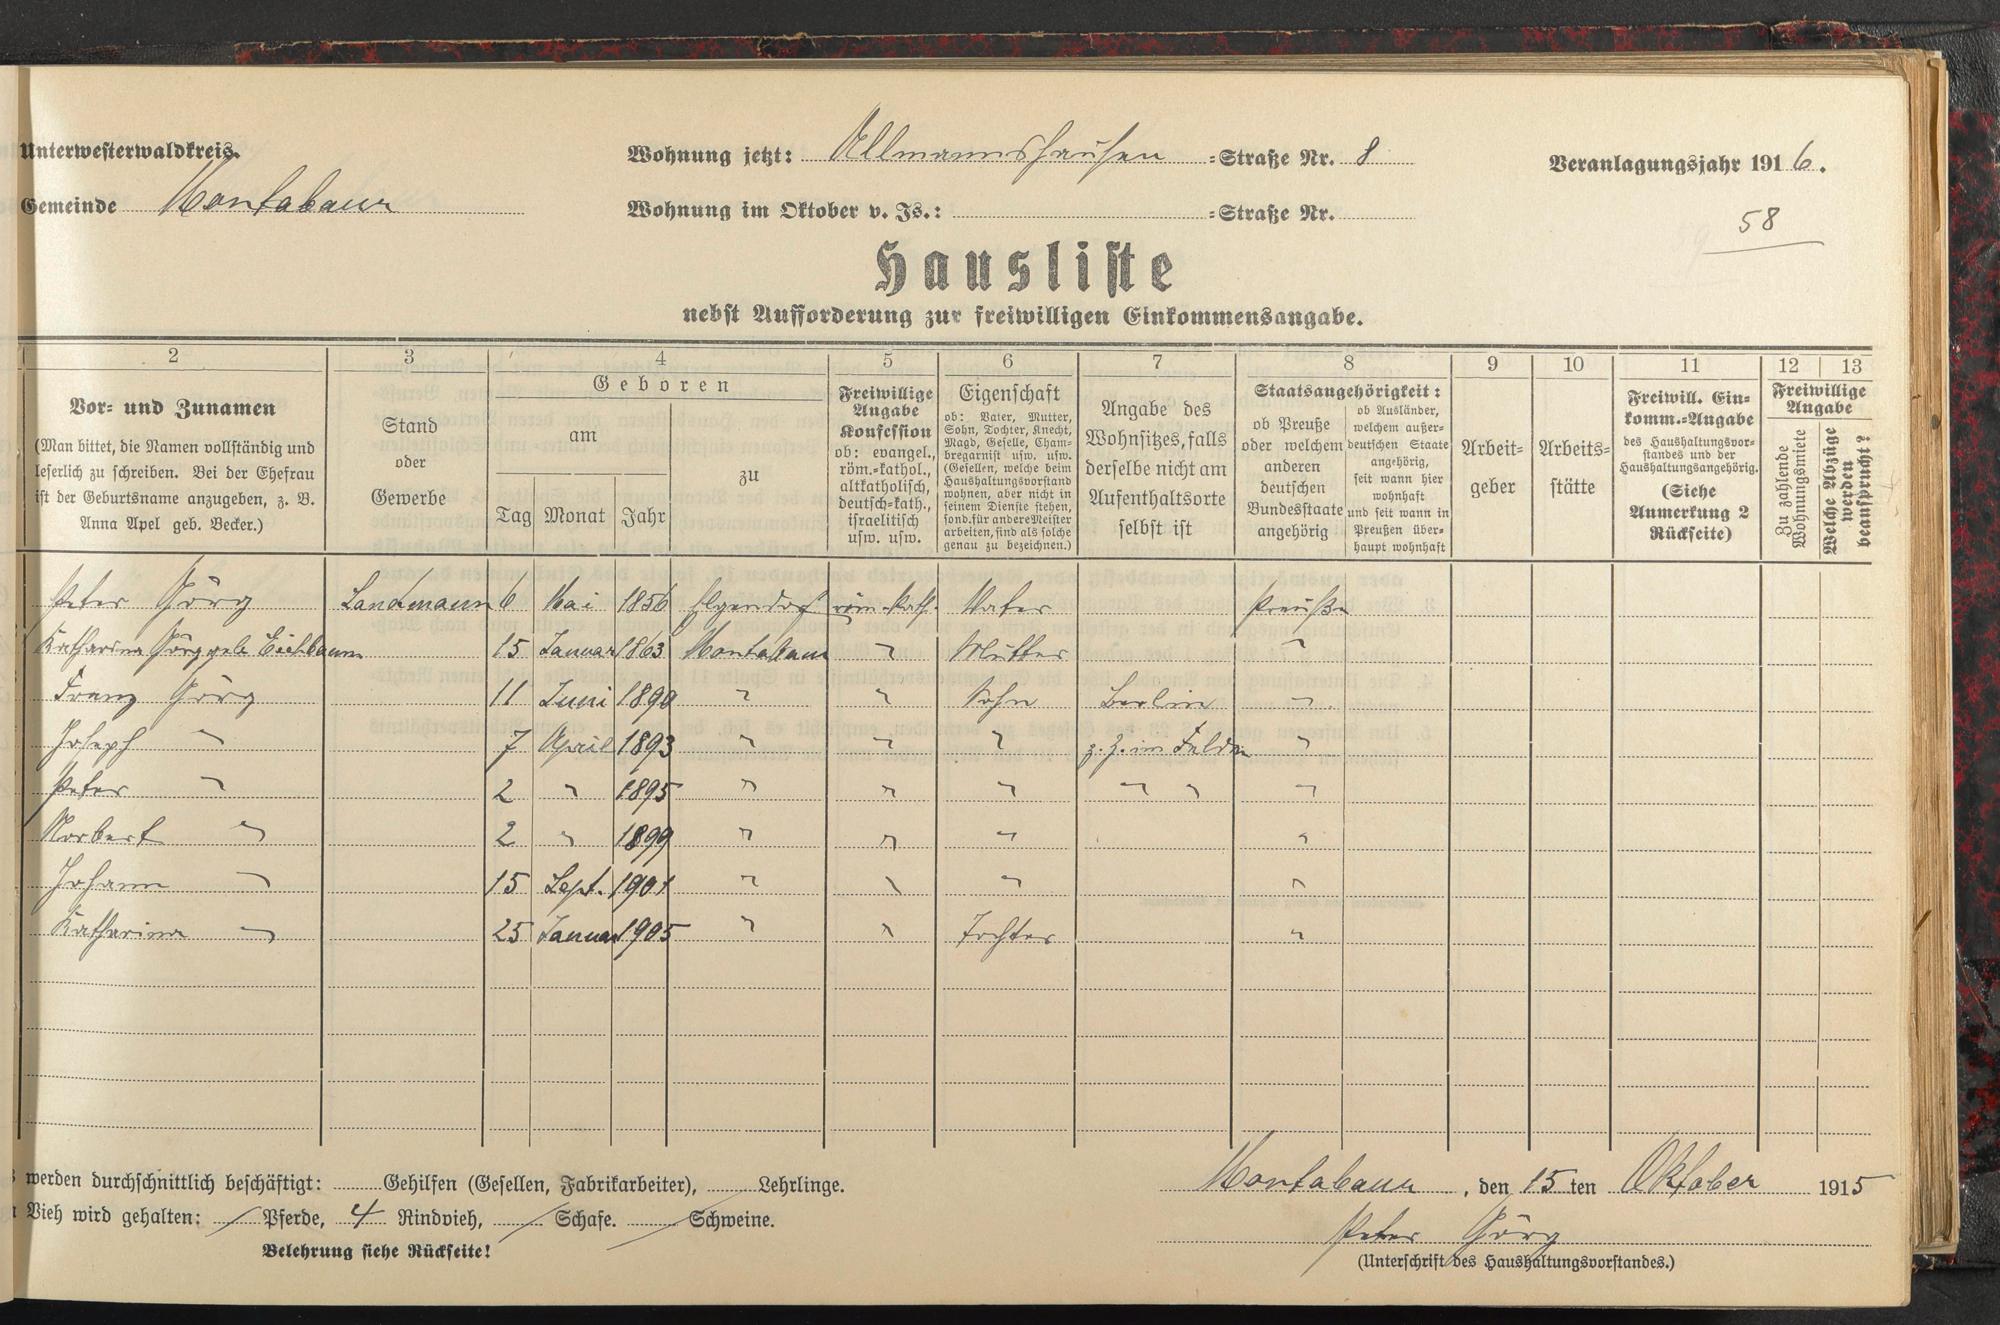 Unterwesterwaldkreis.
Gemeinde Montabaur
Wohnung jetzt: Allmannshausen =Straße Nr. 8
Wohnung im Oktober v. Js.: =Straße Nr.
Veranlagungsjahr 1916.
58
Hausliste
nebst Aufforderung zur freiwilligen Einkommensangabe.
2 3 4 5 6 7 8 9 10 11 12 13
Vor- und Zunamen
(Man bittet, die Namen vollständig und
leserlich zu schreiben. Bei der Ehefrau
ist der Geburtsname anzugeben, z. B.
Anna Apel geb. Becker.)
Stand
oder
Gewerbe
Geboren
am
Tag Monat Jahr
zu
Freiwillige
Angabe
Konfession
ob: evangel.,
röm.=kathol.,
altkatholisch,
deutsch=kath.,
israelitisch
usw. usw.
Eigenschaft
ob: Vater, Mutter,
Sohn, Tochter, Knecht,
Magd, Geselle, Cham-
bregarnist usw. usw.
(Gesellen, welche beim
Haushaltungsvorstand
wohnen, aber nicht in
seinem Dienste stehen,
sond. für andere Meister
arbeiten, sind als solche
genau zu bezeichnen.)
Angabe des
Wohnsitzes, falls
derselbe nicht am
Aufenthaltsorte
selbst ist
Staatsangehörigkeit:
ob Preuße
oder welchem
anderen
deutschen
Bundesstaate
angehörig
ob Ausländer,
welchem außer-
deutschen Staate
angehörig,
seit wann hier
wohnhaft
und seit wann in
Preußen über-
haupt wohnhaft
Arbeit-
geber
Arbeits-
stätte
Freiwill. Ein-
komm.=Angabe
des Haushaltungsvor-
standes und der
Haushaltungsangehörig.
(Siehe
Anmerkung 2
Rückseite)
Freiwillige
Angabe
Zu zahlende
Wohnungsmiete
Welche Abzüge
werden
beansprucht?
Peter Görg Landmann 6 Mai 1856 Elgendorf röm.-kath. Vater Preuße
Katharina Görg geb. Eichbaum 15 Januar 1863 Montabaur " Mutter "
Franz Görg 11 Juni 1890 " " Sohn Berlin "
Joseph " 7 April 1893 " " " z. Z. im Felde "
Peter " 2 " 1895 " " " " " "
Norbert " 2 " 1899 " " " "
Johann " 15 Sept. 1901 " " " "
Katharina " 25 Januar 1905 " " Tochter "
werden durchschnittlich beschäftigt: Gehilfen (Gesellen, Fabrikarbeiter), Lehrlinge.
Vieh wird gehalten: / Pferde, 4 Rindvieh, / Schafe. / Schweine.
Belehrung siehe Rückseite!
Montabaur, den 15ten Oktober 1915
Peter Görg
(Unterschrift des Haushaltungsvorstandes.)